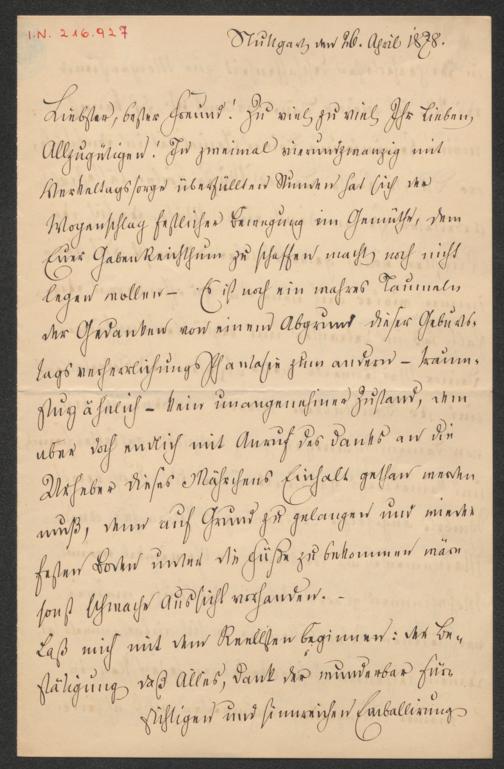 I.N. 216.927
Stuttgart, den 26. April 1878.
Liebster, bester Freund! Zu viel, zu viel, Ihr lieben,
Allzugütigen! In zweimal vierundzwanzig mit
Werkeltagssorge überfüllten Stunden hat sich der
Wogenschlag festlicher Bewegung im Gemüthe, dem
Euer Gabenreichthum zu schaffen macht, noch nicht
legen wollen – Es ist noch ein wahres Taumeln
der Gedanken von einem Abgrund dieser Geburts-
tagsverherrlichungsphantasie zum andern – traum-
flugähnlich – kein unangenehmer Zustand, dem
aber doch endlich mit Anruf des Danks an die
Urheber dieses Mährchens Einhalt gethan werden
muß, denn auf Grund zu gelangen und wieder
festen Boden unter die Füße zu bekommen wäre
sonst schwache Aussicht vorhanden. –
Laß mich mit dem Reellsten beginnen: der Be-
stätigung, daß Alles, Dank der wunderbar für-
sichtigen und sinnreichen Emballirung